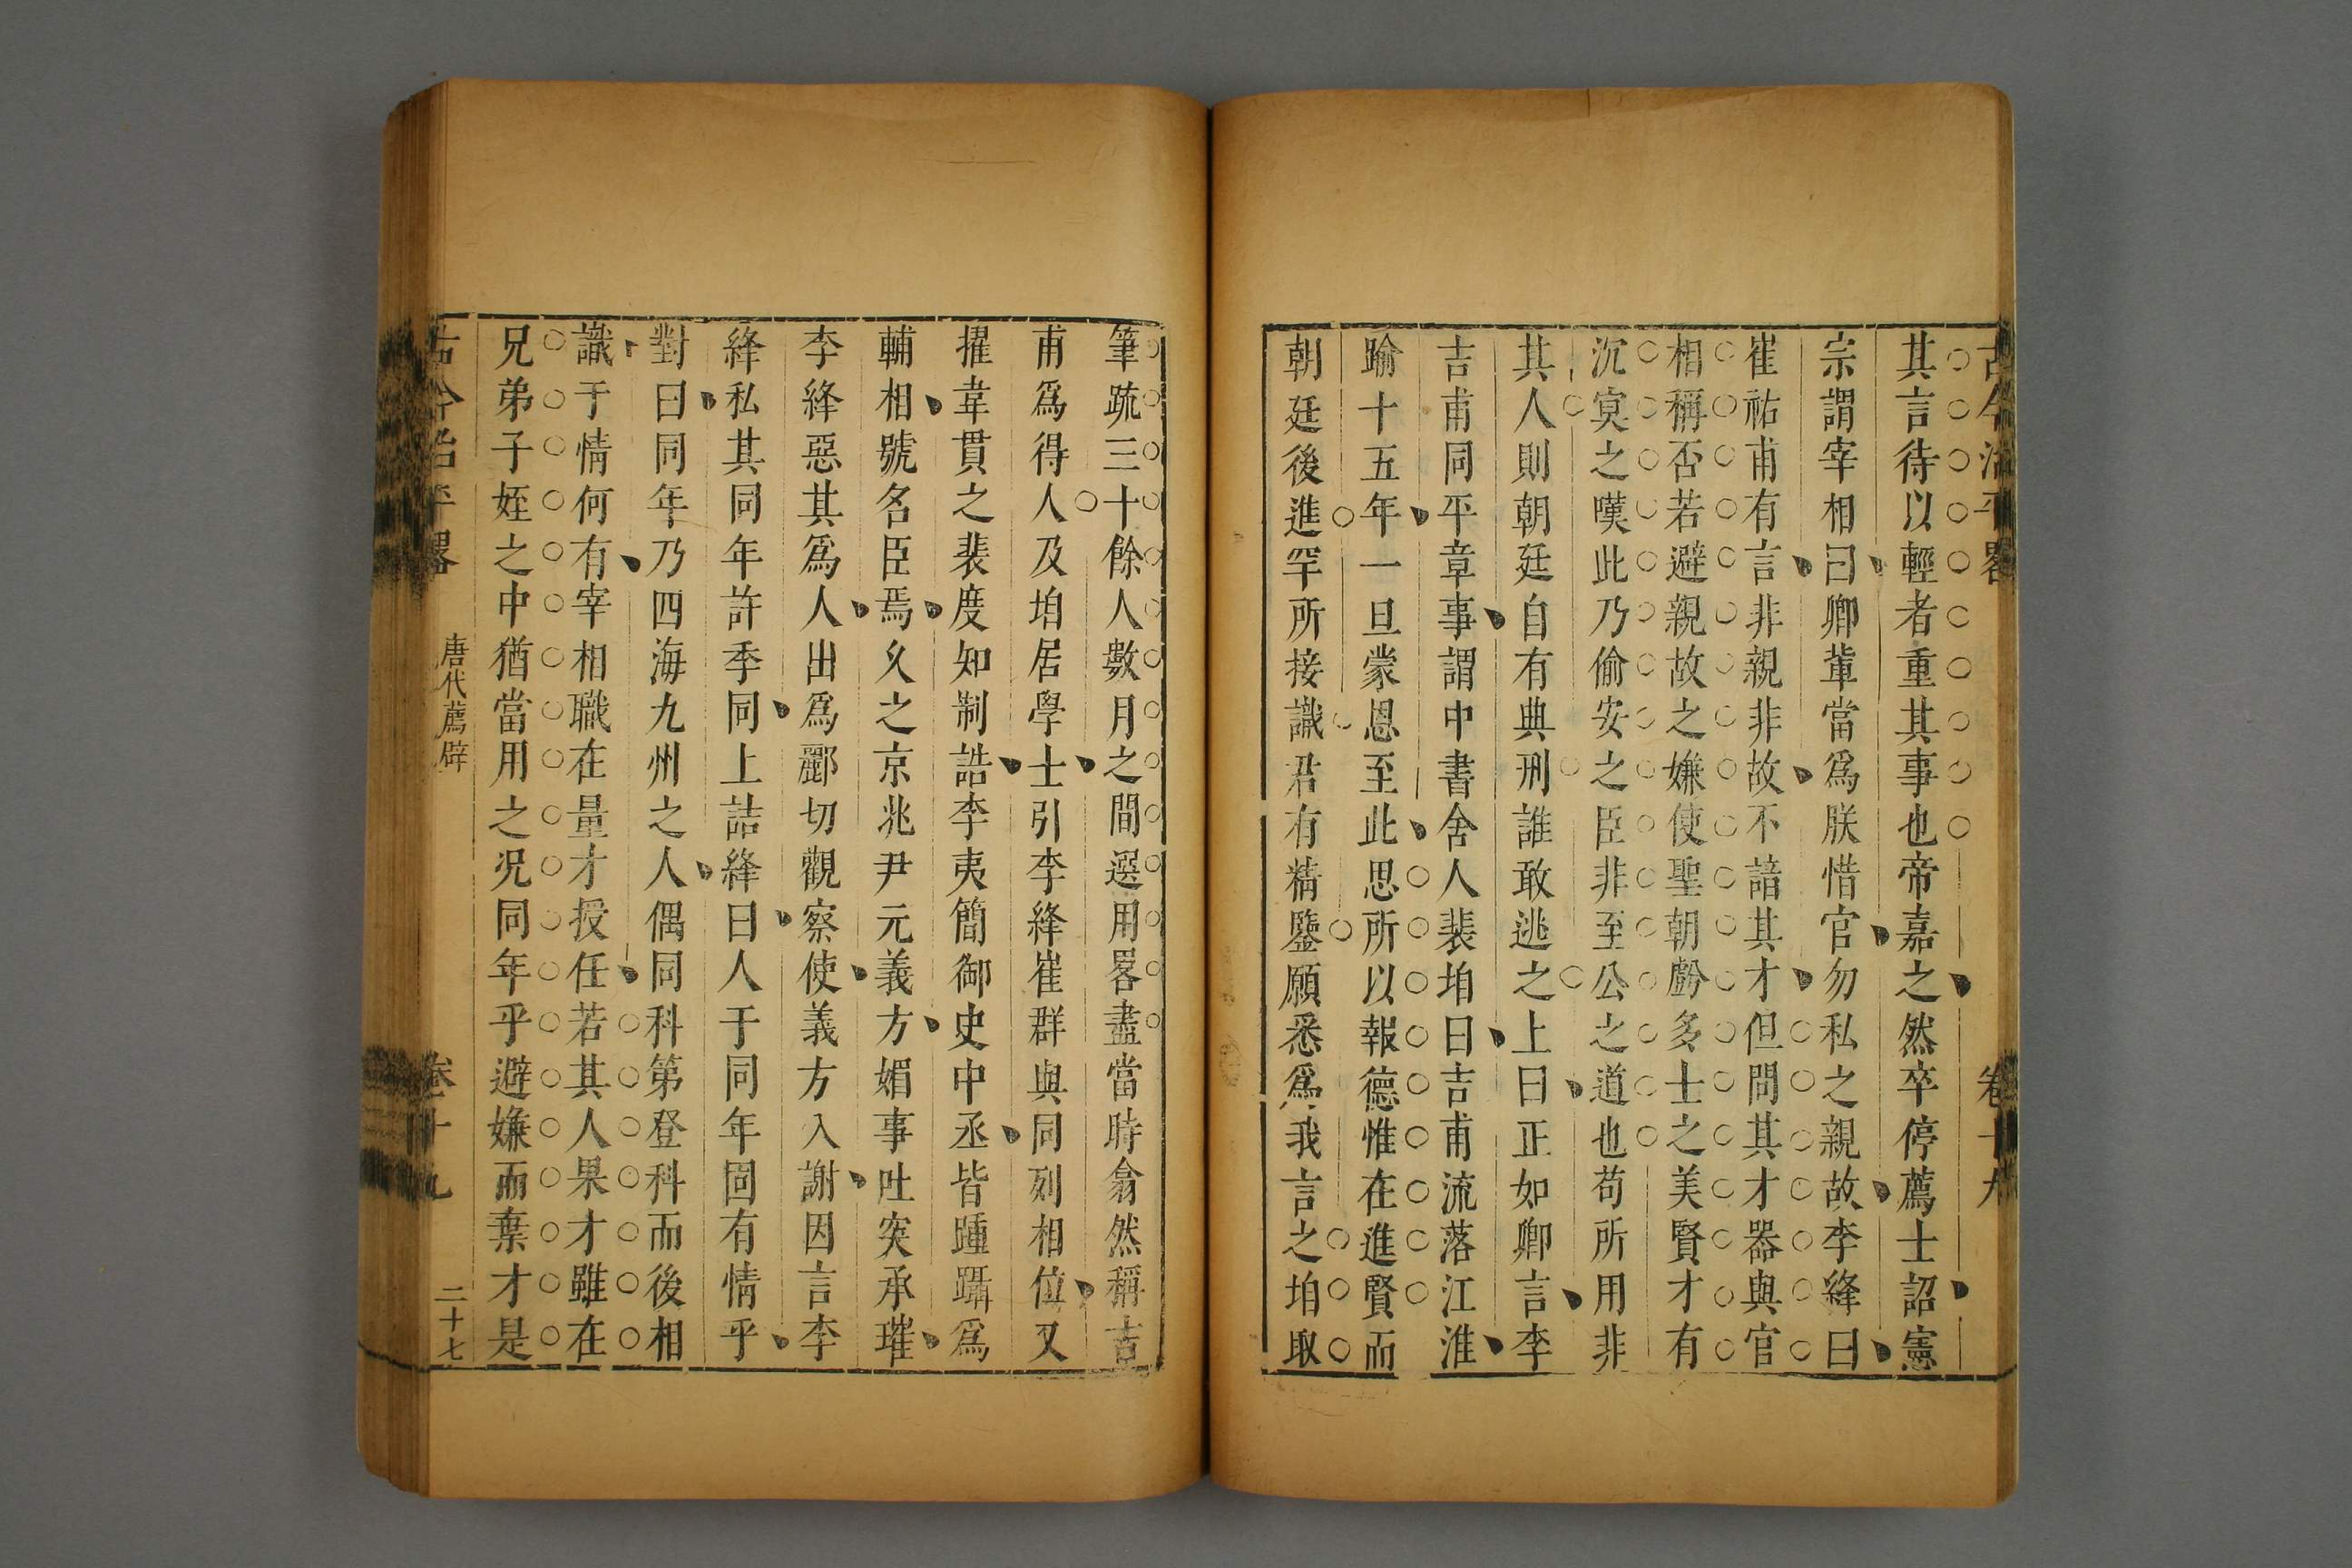 古今治平畧 卷十九
其言待以輕者重其事也帝嘉之然卒停薦士詔憲
宗謂宰相曰卿輩當爲朕惜官勿私之親故李絳曰
崔祐甫有言非親非故不諳其才但問其才器與官
相稱否若避親故之嫌使聖朝虧多士之美賢才有
沉㝠之嘆此乃偷安之臣非至公之道也苟所用非
其人則朝廷自有典刑誰敢逃之上曰正如卿言李
吉甫同平章事謂中書舍人裴垍曰吉甫流落江淮
踰十五年一旦蒙恩至此思所以報德惟在進賢而
朝廷後進罕所接識君有精鑒願悉爲我言之垍取
筆疏三十餘人數月之間選用畧盡當時翕然稱吉
甫爲得人及垍居學士引李絳崔群與同列相位又
擢韋貫之裴度知制誥李夷簡御史中丞皆踵躡爲
輔相號名臣焉久之京兆尹元義方媚事吐突承璀
李絳惡其爲人出爲鄜切觀察使義方入謝因言李
絳私其同年許季同上詰絳曰人于同年固有情乎
對曰同年乃四海九州之人偶同科第登科而後相
識于情何有宰相職在量才授任若其人果才雖在
兄弟子姪之中猶當用之况同年乎避嫌而棄才是
古今治平畧 唐代薦辟 卷十九 二十七